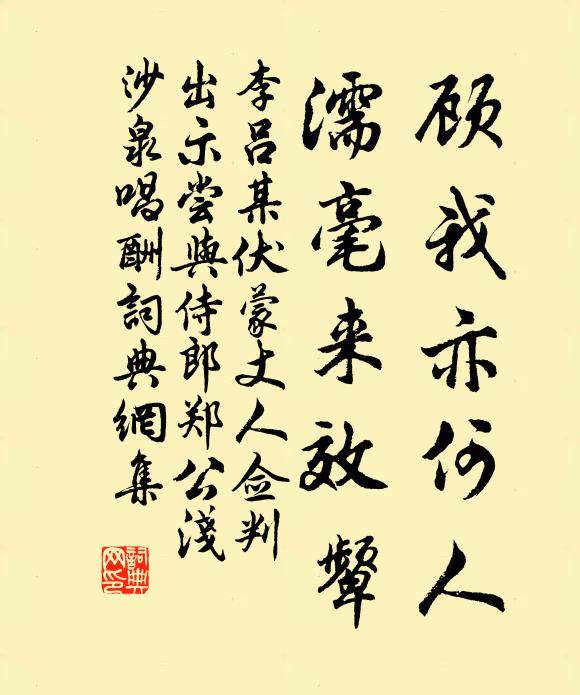 顾我亦何人
濡毫来效颦
李吕某伏蒙丈人佥判
出示尝與侍郎郑公淺
沙泉唱酬詞典網集
詞典
网印